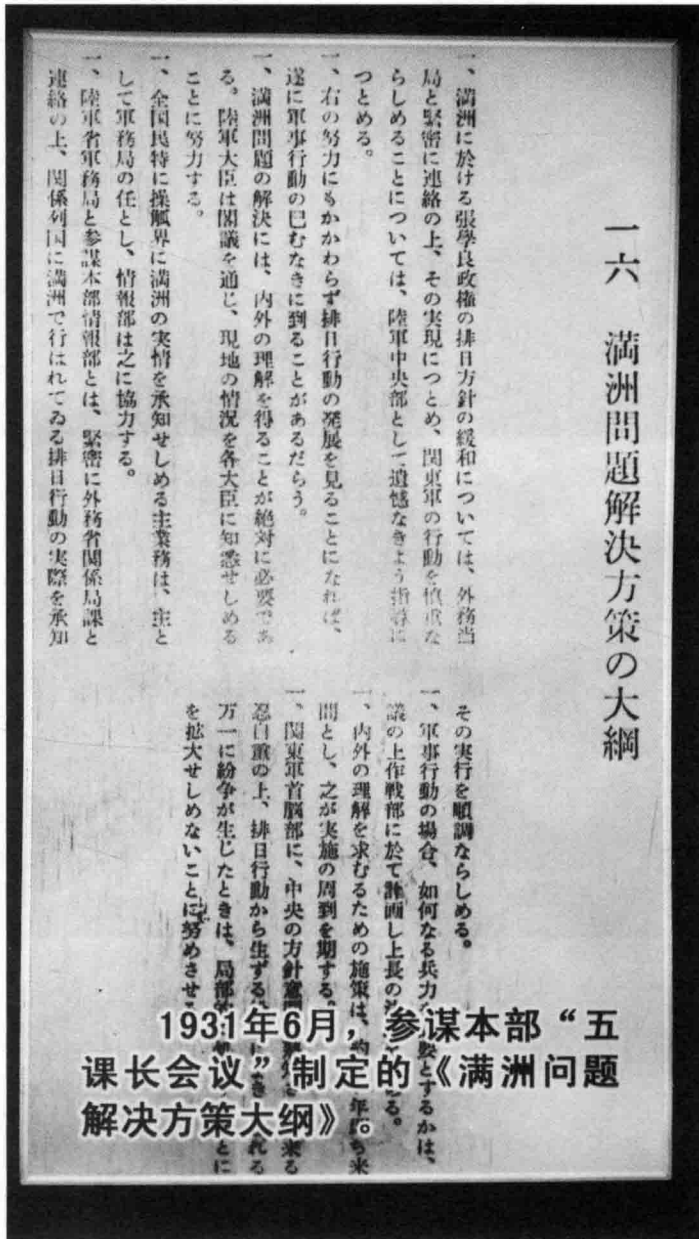 一六　満洲問題解決方策の大綱
一、満洲に於ける張學良政権の排日方針の緩和については、外務当
局と緊密に連絡の上、その実現につとめ、関東軍の行動を慎重な
らしめることについては、陸軍中央部として遺憾なきよう指導に
つとめる。
一、右の努力にもかかわらず排日行動の発展を見ることになれば、
遂に軍事行動の已むなきに到ることがあるだらう。
一、満洲問題の解決には、内外の理解を得ることが絶対に必要であ
る。陸軍大臣は閣議を通じ、現地の情況を各大臣に知悉せしめる
ことに努力する。
一、全国民特に操觚界に満洲の実情を承知せしめる主業務は、主と
して軍務局の任とし、情報部は之に協力する。
一、陸軍省軍務局と参謀本部情報部とは、緊密に外務省関係局課と
連絡の上、関係列国に満洲で行はれてゐる排日行動の実際を承知
その実行を順調ならしめる。
一、軍事行動の場合、如何なる兵力を とするかは、
議の上作戦部に於て計画し上長の る。
一、内外の理解を求むるための施策は、約 年 ち来
間とし、之が実施の周到を期する。
一、関東軍首脳部に、中央の方針意 来る
忍自重の上、排日行動から生ずる れる
万一に紛争が生じたときは、局部 とに
を拡大せしめないことに努めさせ
1931年6月，参谋本部“五
课长会议”制定的《满洲问题
解决方策大纲》。